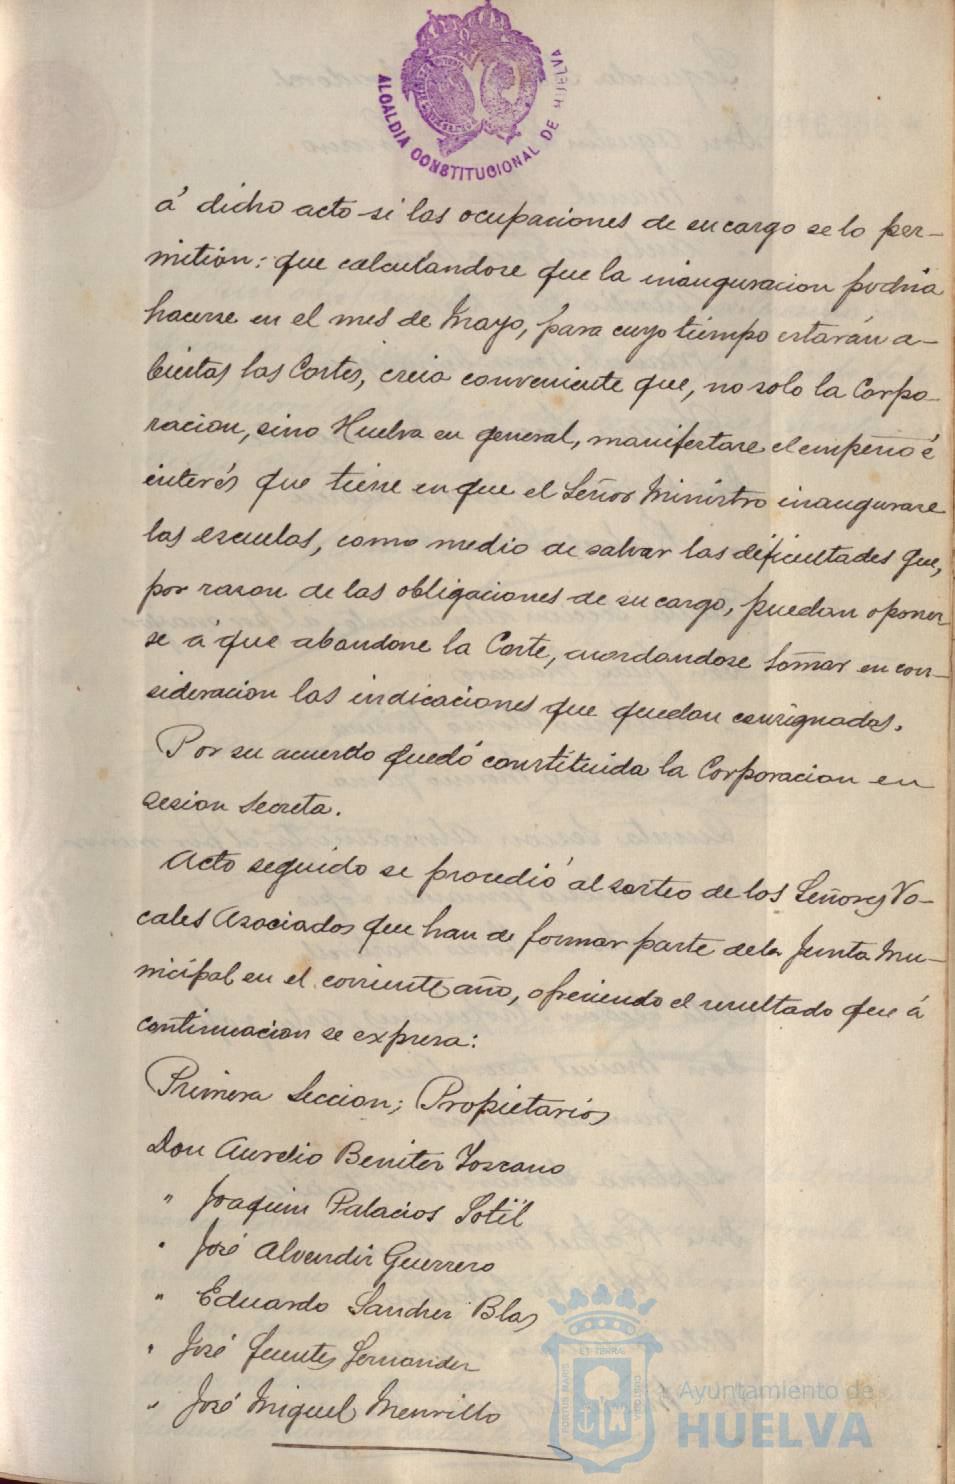 ALCALDIA CONSTITUCIONAL DE HUELVA
á dicho acto si las ocupaciones de su cargo se lo per-
mitian: que calculandose que la inauguracion podria
hacerse en el mes de Mayo, para cuyo tiempo estarán a-
biertas las Cortes, creia conveniente que, no solo la Corpo-
racion, sino Huelva en general, manifestase el empeño é
interés que tiene en que el Señor Ministro inaugurase
las escuelas, como medio de salvar las dificultades que,
por razon de las obligaciones de su cargo, puedan oponer
se á que abandone la Corte, acordandose tomar en con-
sideracion las indicaciones que quedan consignadas.
Por su acuerdo quedó constituida la Corporacion en
sesion secreta.
Acto seguido se procedió al sorteo de los Señores Vo-
cales Asociados que han de formar parte de la Junta Mu-
nicipal en el corriente año, ofreciendo el resultado que á
continuacion se expresa:
Primera Seccion; Propietarios
Don Aurelio Benitez Toscano
" Joaquin Palacios Sotil
" José Alvendiz Guerrero
" Eduardo Sanchez Blas
" José Fuentes Fernandez
" José Miguel
ET TERRÆ
PORTUS MARIS
CUSTODIA
Ayuntamiento de
HUELVA